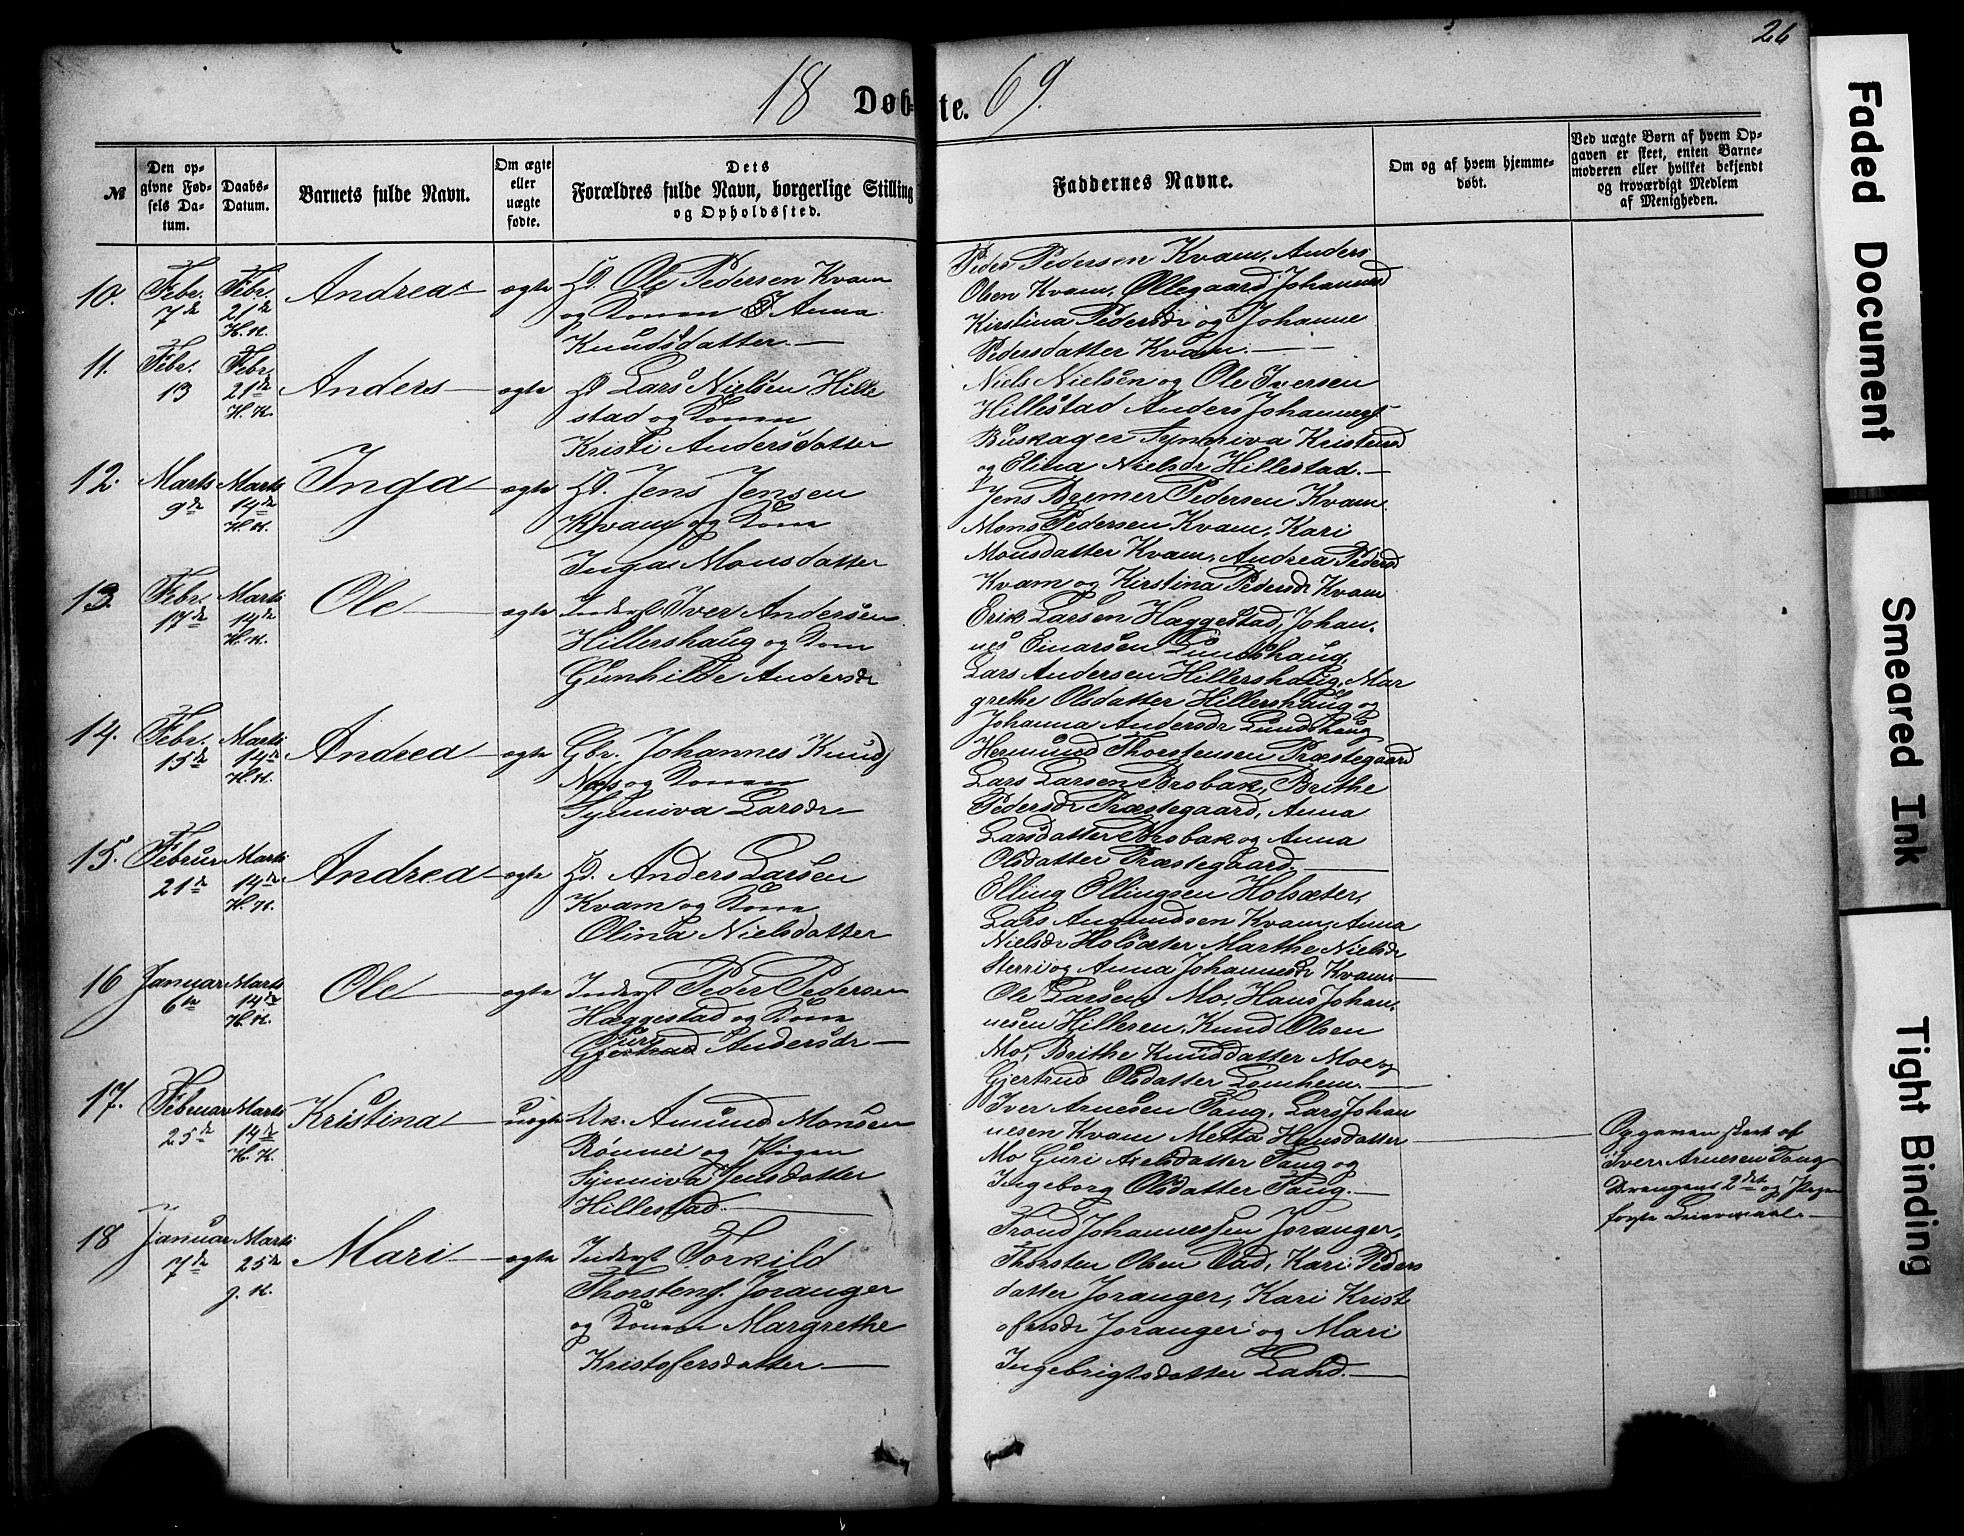 26
18 Døb-te. 69.
№
Den op-
givne Fød-
sels Da-
tum.
Daabs-
Datum.
Barnets fulde Navn.
Om ægte
eller
uægte
fødte.
Dets
Forældres fulde Navn, borgerlige Stilling
og Opholdssted.
Faddernes Navne.
Om og af hvem hjemme-
døbt.
Ved uægte Børn af hvem Op-
gaven er skeet, enten Barne-
moderen eller hvilket bekjendt
og troværdigt Medlem
af Menigheden.
10.
Febr.
7de
Febr.
21de
H. K.
Andrea
ægte
Ole Pedersen Kvam
og Konen Anna
Knudsdatter.
Peder Pedersen Kvam, Anders
Olsen Kvam, Øllegaard Johannesd
Kirstina Pedersdr og Johanne
Pedersdatter Kvam.
11.
Febr.
13
Febr.
21de
H. K.
Anders
ægte
Lars Nielsen Hille
stad og Konen
Kristi Andersdatter
Niels Nielsen og Ole Iversen
Hillestad Anders Johannes
Synneva
og Elina Nielsdr Hillestad.
12.
Marts
9de
Marts
14de
H. K.
Inga
ægte
Jens Jensen
Kvam og Kone
Inga Monsdatter
Jens Bremer Pedersen Kvam.
Mons Pedersen Kvam, Kari
Monsdatter Kvam, Andrea Pedersd
Kvam og Kirstina Pedersdr Kvam
13.
Febr.
17de
Marts
14de
H. K.
Ole
ægte
Inderst Iver Andersen
Hillershaug og Kone
Gunhilde Andersdr
Erik Larsen Hæggestad, Johan-
nes Einarsen Lundshaug,
Lars Andersen Hillershaug, Mar
grethe Olsdatter Hillershaug og
Johanna Andersdr Lundshaug
14.
Febr.
15de
Marts
14de
H. K.
Andrea
ægte
Gbr. Johannes Knuds
Næs og Konen
Synneva Larsdr
Hermund Thorstensen Præstegaard
Lars Larsen Brobak, Brithe
Pedersdr Præstegaard, Anna
Larsdatter Brobak og Anna
Olsdatter Præstegaard
15.
Februar
21de
Marts
14de
H. K.
Andrea
ægte
Anders Larsen
Kvam og Kone
Olina Nielsdatter
Elling Ellingsen Holsæter,
Lars Amundsen Kvam, Anna
Nielsdr Holsæter Marthe Nielsdr
Sterri og Anna Johannesdr Kvam
16
Januar
6te
Marts
14de
H. K.
Ole
ægte
Inderst Peder Pedersen
Hæggestad og Kone
Guri
Andersdr
Ole Larsen Mo, Hans Johan-
nesen Hilleren, Knud Olsen
Mo, Brithe Knuddatter Mo og
Gjertrud Olsdatter Lomheim.
17.
Februar
25de
Marts
14de
H. K.
Kristina
uægte
Uk. Amund Monsen
Rønnei og Pigen
Synneva Jensdatter
Hillestad.
Iver Arnesen Taug, Lars Johan
nesen Kvam Metta Hansdatter
Mo Guri Axelsdatter Taug og
Ingeborg Olsdatter Taug.
Opgaven skeet af
Iver Arnesen Taug
Drengens 2det og Pigen
første Leiermaal.
18
Januar
7de
Marts
25de
J. K.
Mari
ægte
Inderst Torkild
Thorstens. Joranger
og Konen Margrethe
Kristofersdatter
Trond Johannessen Joranger,
Thorsten Olsen Vad, Kari Peders
datter Joranger, Kari Krist
ofersdr Joranger og Mari
Ingebrigtsdatter Land.
Faded Document
Smeared Ink
Tight Binding